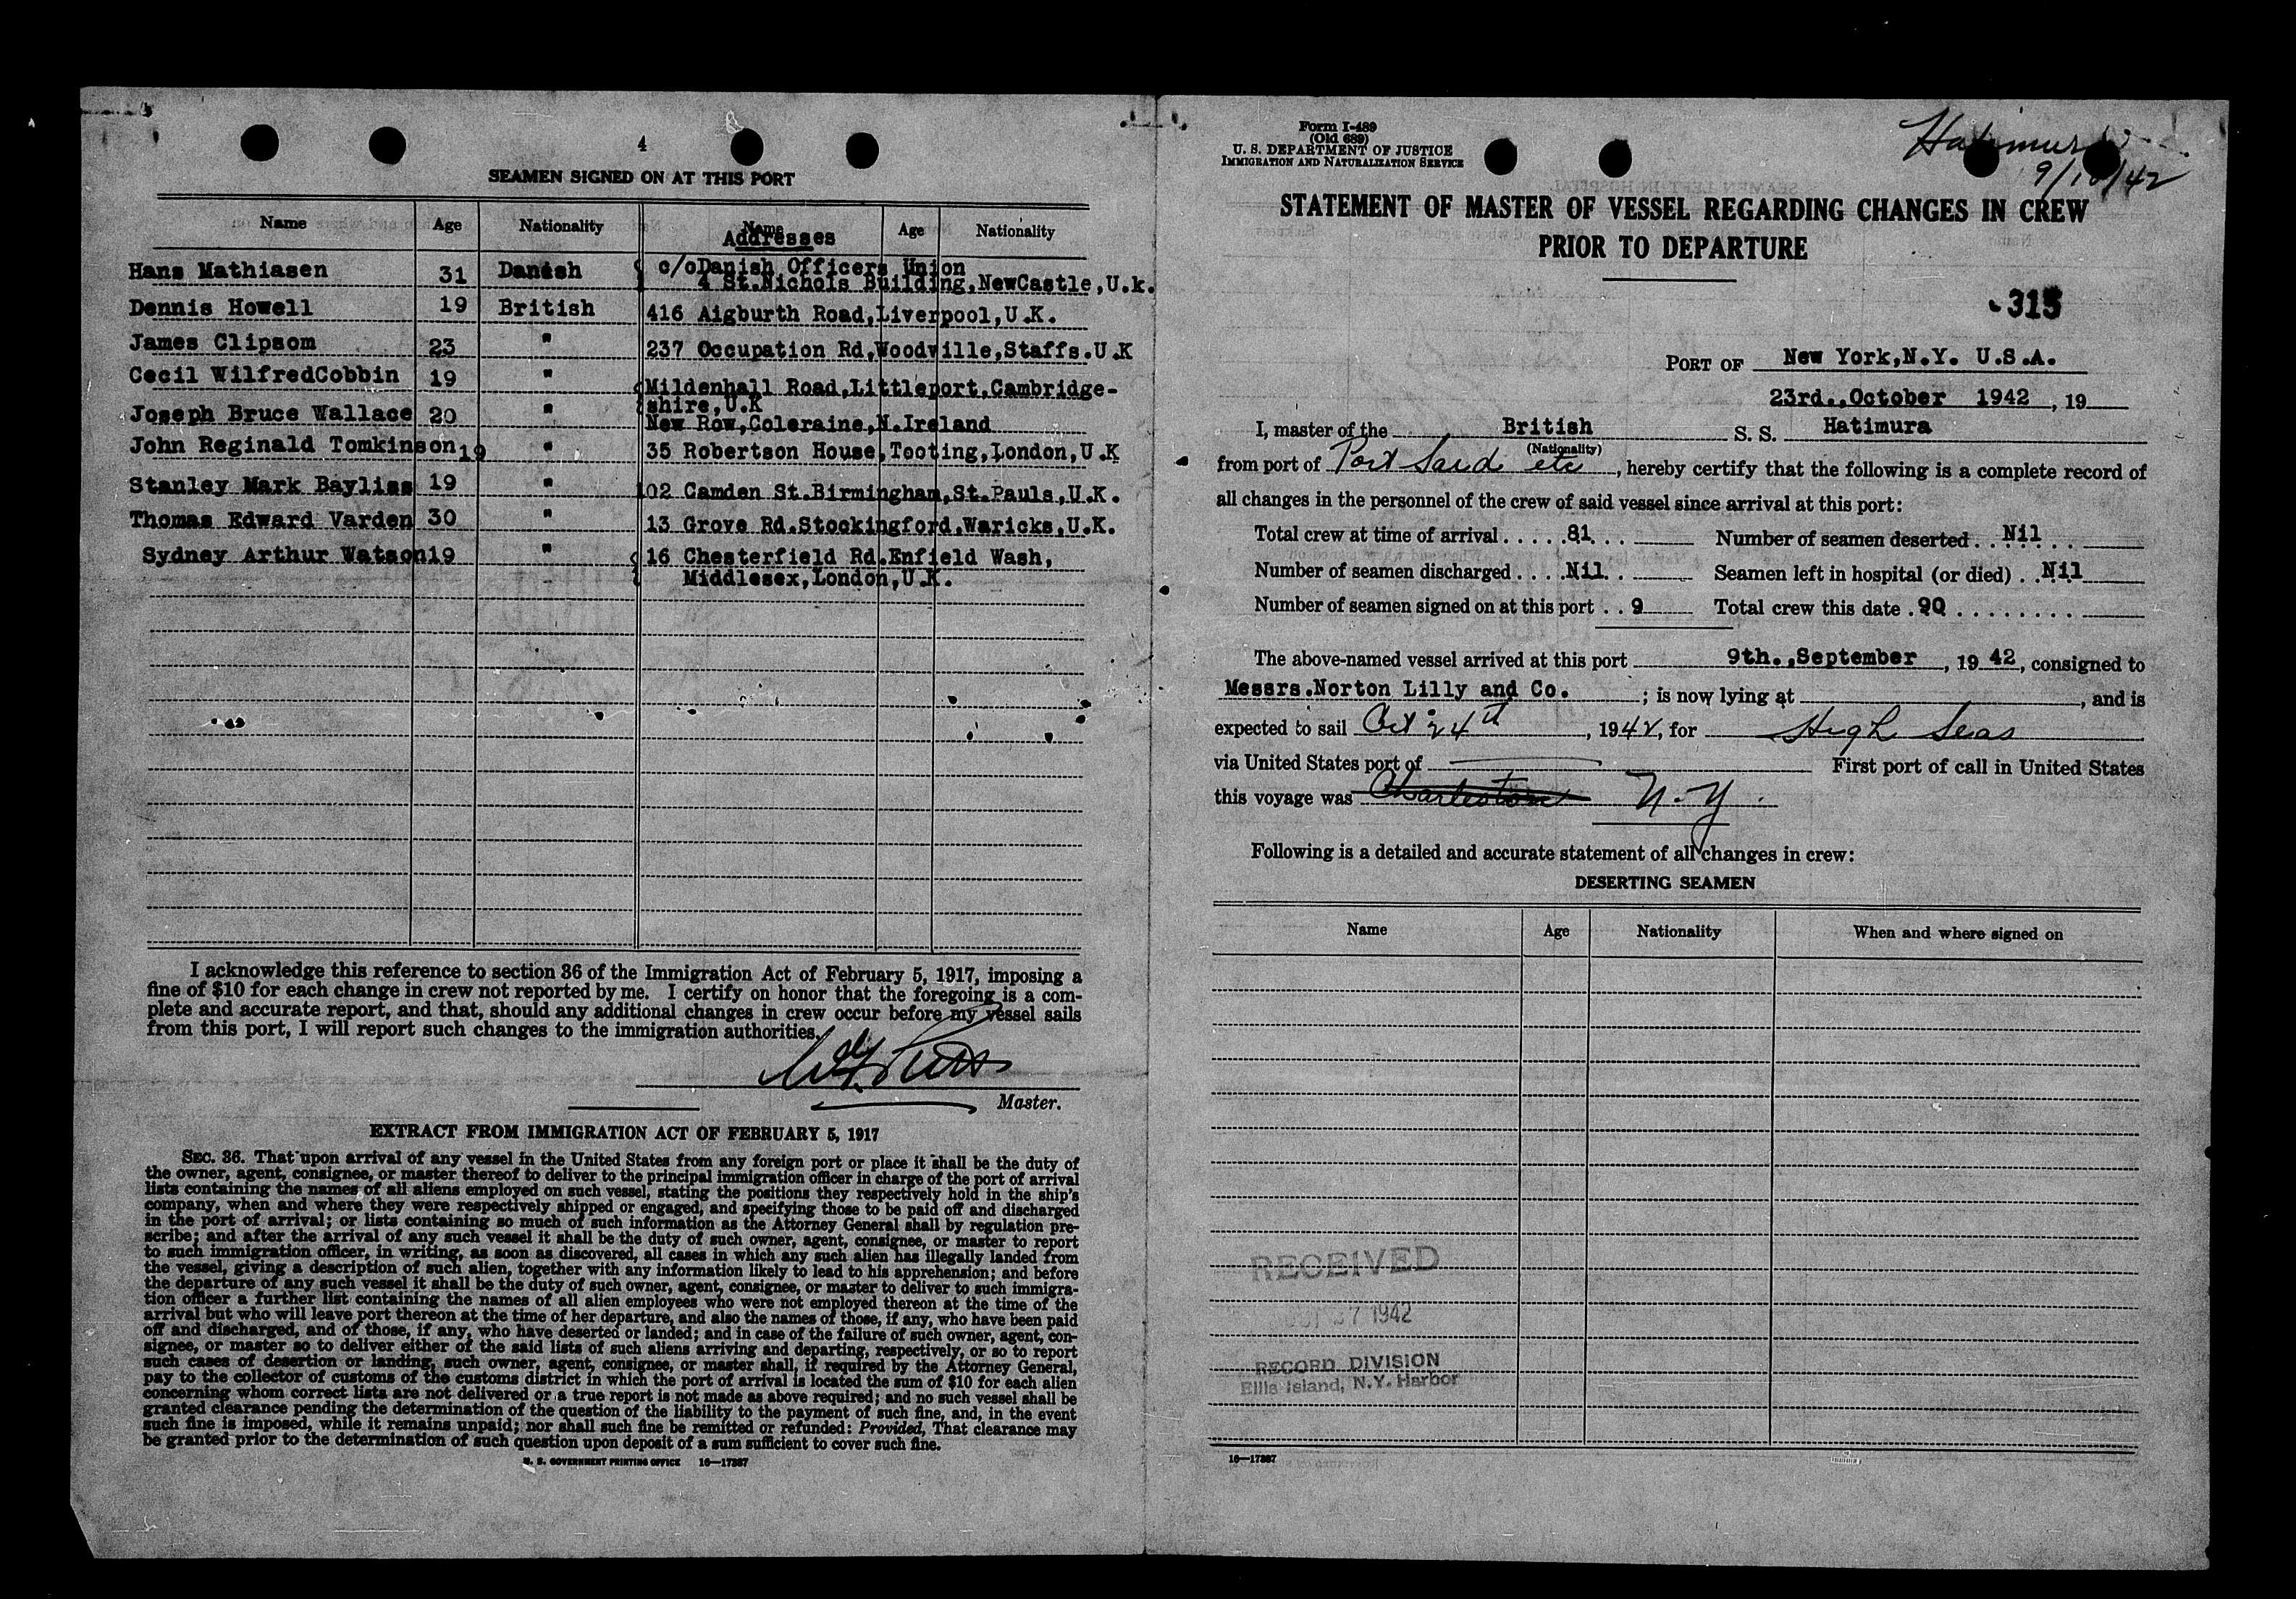 4
SEAMEN SIGNED ON AT THIS PORT
Name Age Nationality Name Addresses Age Nationality
Hans Mathiasen 31 Danish c/oDanish Officers Union
4 St.Nichols Building,NewCastle,U.k.
Dennis Howell 19 British 416 Aigburth Road,Liverpool,U.K.
James Clipsom 23 " 237 Occupation Rd,Woodville,Staffs.U.K
Cecil WilfredCobbin 19 " Mildenhall Road,Littleport,Cambridge-
shire,U.K
Joseph Bruce Wallace 20 " New Row,Coleraine,N.Ireland
John Reginald Tomkinson 19 " 35 Robertson House,Tooting,London,U.K
Stanley Mark Bayliss 19 " 102 Camden St.Birmingham,St.Pauls,U.K.
Thomas Edward Varden 30 " 13 Grove Rd.Stockingford,Waricks,U.K.
Sydney Arthur Watson 19 " 16 Chesterfield Rd.Enfield Wash,
Middlesex,London,U.K.
I acknowledge this reference to section 36 of the Immigration Act of February 5, 1917, imposing a
fine of $10 for each change in crew not reported by me. I certify on honor that the foregoing is a com-
plete and accurate report, and that, should any additional changes in crew occur before my vessel sails
from this port, I will report such changes to the immigration authorities.
Master.
EXTRACT FROM IMMIGRATION ACT OF FEBRUARY 5, 1917
SEC. 36. That upon arrival of any vessel in the United States from any foreign port or place it shall be the duty of
the owner, agent, consignee, or master thereof to deliver to the principal immigration officer in charge of the port of arrival
lists containing the names of all aliens employed on such vessel, stating the positions they respectively hold in the ship's
company, when and where they were respectively shipped or engaged, and specifying those to be paid off and discharged
in the port of arrival; or lists containing so much of such information as the Attorney General shall by regulation pre-
scribe; and after the arrival of any such vessel it shall be the duty of such owner, agent, consignee, or master to report
to such immigration officer, in writing, as soon as discovered, all cases in which any such alien has illegally landed from
the vessel, giving a description of such alien, together with any information likely to lead to his apprehension; and before
the departure of any such vessel it shall be the duty of such owner, agent, consignee, or master to deliver to such immigra-
tion officer a further list containing the names of all alien employees who were not employed thereon at the time of the
arrival but who will leave port thereon at the time of her departure, and also the names of those, if any, who have been paid
off and discharged, and of those, if any, who have deserted or landed; and in case of the failure of such owner, agent, con-
signee, or master so to deliver either of the said lists of such aliens arriving and departing, respectively, or so to report
such cases of desertion or landing, such owner, agent, consignee, or master shall, if required by the Attorney General,
pay to the collector of customs of the customs district in which the port of arrival is located the sum of $10 for each alien
concerning whom correct lists are not delivered or a true report is not made as above required; and no such vessel shall be
granted clearance pending the determination of the question of the liability to the payment of such fine, and, in the event
such fine is imposed, while it remains unpaid; nor shall such fine be remitted or refunded: Provided, That clearance may
be granted prior to the determination of such question upon deposit of a sum sufficient to cover such fine.
U. S. GOVERNMENT PRINTING OFFICE 16—17387
Form I-489
(Old 689)
U. S. DEPARTMENT OF JUSTICE
IMMIGRATION AND NATURALIZATION SERVICE
Hatimura
9/10/42
STATEMENT OF MASTER OF VESSEL REGARDING CHANGES IN CREW
PRIOR TO DEPARTURE
315
PORT OF New York,N.Y. U.S.A.
23rd.,October 1942, 19
I, master of the British S. S. Hatimura
(Nationality)
from port of Port Said etc, hereby certify that the following is a complete record of
all changes in the personnel of the crew of said vessel since arrival at this port:
Total crew at time of arrival.....81... Number of seamen deserted..Nil...
Number of seamen discharged....Nil.. Seamen left in hospital (or died)..Nil
Number of seamen signed on at this port..9 Total crew this date.90........
The above-named vessel arrived at this port 9th.,September, 19 42, consigned to
Messrs.Norton Lilly and Co.; is now lying at , and is
expected to sail Oct 24th, 1942, for High Seas
via United States port of First port of call in United States
this voyage was Charleston N.Y.
Following is a detailed and accurate statement of all changes in crew:
DESERTING SEAMEN
Name Age Nationality When and where signed on
RECEIVED
1942
RECORD DIVISION
Ellis Island, N.Y. Harbor
16—17387